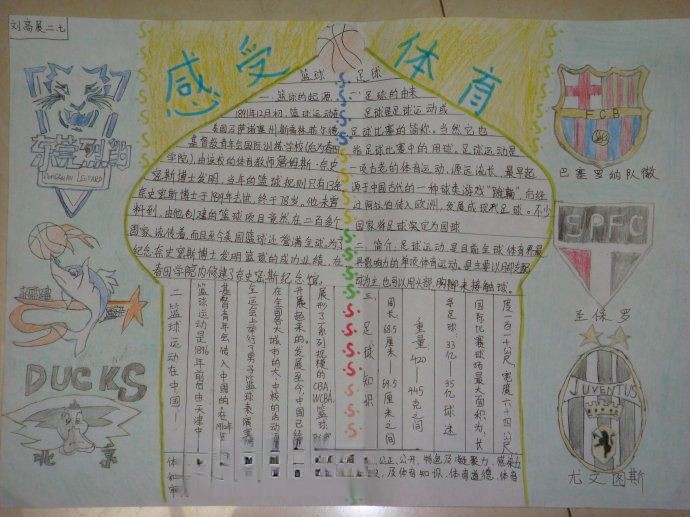 刘高展二、七
感受体育
篮球
足球
一、篮球的起源
1891年12月初，篮球运动是
基督教青年会国际训练学校(后为春田
学院)，由该校的体育教师詹姆斯·奈史
密斯博士发明，当年的篮球规则只有13条，
奈史密斯博士于1939年去世，终于78岁。他未曾
料到，由他创建的篮球项目竟然在二百多个
国家流传着，而且至今美国篮球还誉满全球，为了
纪念奈史密斯博士发明篮球的成功业绩，在
春田学院内修建了奈史密斯纪念馆。
一、足球的由来
足球是足球运动或
足球比赛的简称，当然它也
指足球比赛中的用球。足球运动是
一项古老的体育运动，源远流长，最早起
源于中国古代的一种球类游戏"蹴鞠"，后经
过阿拉伯传入欧洲，发展成现代足球。不少
国家将足球定为国球
二、简介：足球运动，是目前全球体育界最
具影响力的单项体育运动，是主要以脚支配
为主，也可以用头部、胸脚来接触球。
二、篮球运动在中国
篮球运动是1896年前后由天津中
基督教青年会传入中国的，在1910年
全运会上举行了男子篮球表演赛
在全国各大城市的大中校的活动
开展起来的，发展至今，中国已经
展形了系列规模的CBA,WCBA,篮球
三、足球知识
周长：68.5厘米—69.5厘米之间
重量：420—445克之间
单足球：33亿—35亿球迷
国际比赛球场最大面积为，长
度一百一十公尺，宽度六十四公尺
公正，公开，特色及凝聚力，感染力
及体育知识，体育道德，体育
东莞烈豹
DONGGUAN LEOPARD
DUCKS
北京
FCB
巴塞罗纳队徽
SPFC
圣保罗
JUVENTUS
尤文图斯